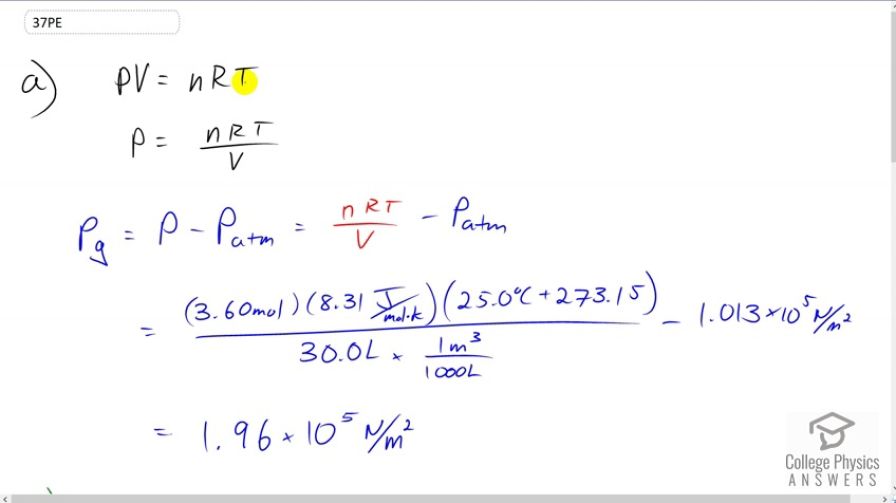 37PE
a) PV = nRT
P = nRT / V
Pg = P - Patm = nRT / V - Patm
= (3.60mol)(8.31 J/mol·K)(25.0°C + 273.15) / 30.0L × 1m³/1000L - 1.013×10⁵ N/m²
= 1.96 × 10⁵ N/m²
College Physics
ANSWERS